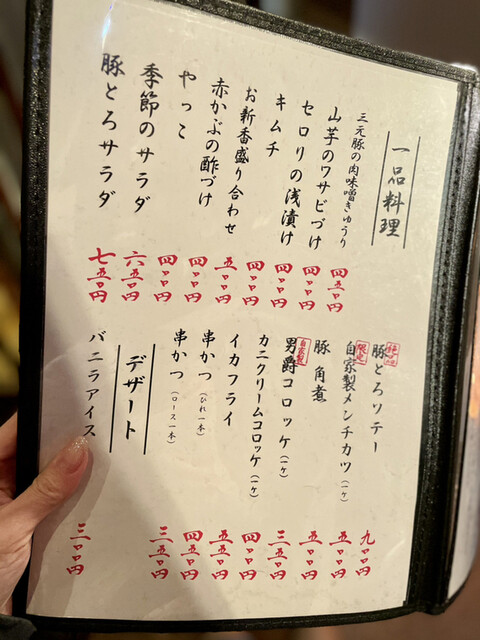 一品料理
三元豚の肉味噌きゅうり 四五〇円
山芋のワサビづけ 四〇〇円
セロリの浅漬け 四〇〇円
キムチ 四〇〇円
お新香盛り合わせ 五〇〇円
赤かぶの酢づけ 四〇〇円
やっこ 四〇〇円
季節のサラダ 六五〇円
豚とろサラダ 七五〇円
豚とろソテー 九〇〇円
限定 自家製メンチカツ(一ヶ) 五五〇円
豚角煮 五〇〇円
自家製 男爵コロッケ(一ヶ) 三五〇円
カニクリームコロッケ(一ヶ) 四〇〇円
イカフライ 五五〇円
串かつ(ひれ一本) 四五〇円
串かつ(ロース一本) 三五〇円
デザート
バニラアイス 三〇〇円